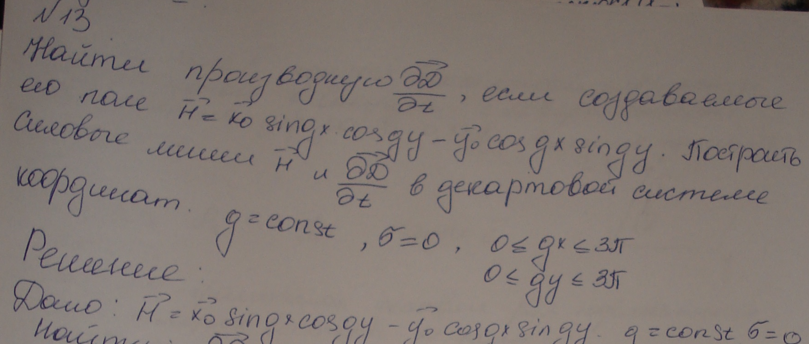 N 13
Найти производную ∂D⃗/∂t, если создаваемые
его поле H⃗ = x⃗₀ sin gx cos gy − y⃗₀ cos gx sin gy. Построить
силовые линии H⃗ и ∂D⃗/∂t в декартовой системе
координат. g = const, σ = 0, 0 ≤ gx ≤ 3π
0 ≤ gy ≤ 3π
Решение:
Дано: H⃗ = x⃗₀ sin gx cos gy − y⃗₀ cos gx sin gy. g = const σ = 0
Найти: